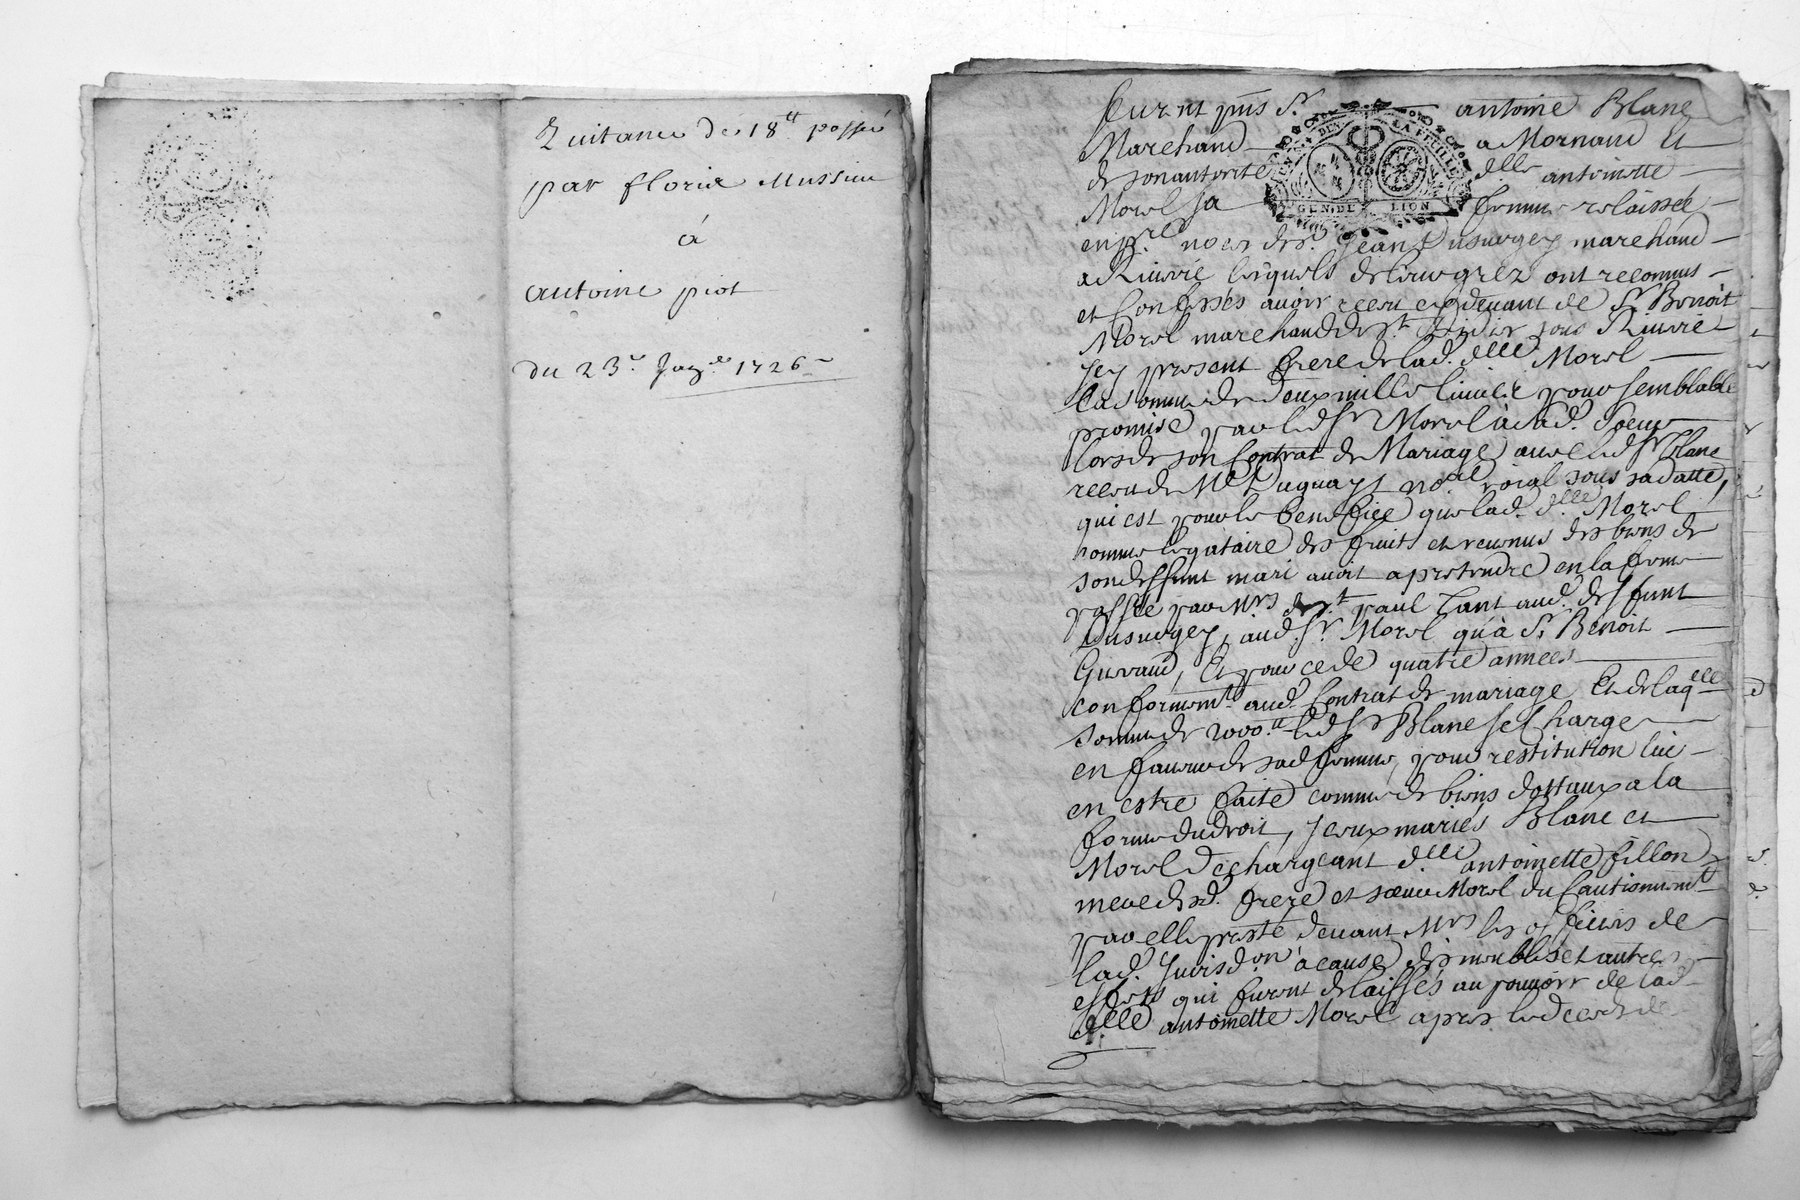 Quitance de 18tt passée
par florie Mussieu
à
antoine piot
du 23e 1726
furent pnts Sr antoine Blanc
Marchand a Mornand Et
de son autorité delle antoinette
Morel sa femme relaissée
en pres nopces de sr Jean Dusurgey marchand
a Riverie lesquels de leur grez ont reconnus
et Confessés avoir receu cy devant de Sr Benoit
Morel marchand de St Didier sous Riverie
Icy present frere de lad. delle Morel
la somme de deux mille livres pour semblable
promise par led Sr Morel à lad. soeur
lors de son Contrat de Mariage avec led Sr Blanc
receu de Me noal roial sous sa datte,
qui est pour le benefice que lad. delle Morel
comme legataire des fruits et revenus des biens de
son deffunt mari avoit a pretendre en la ferme
passée par Mrs de St paul tant aud. deffunt
Dusurgey, aud. Sr Morel qu'à Sr Benoit
Et pour ce de quatre années
conformemt aud. Contrat de mariage Et de laqlle
somme de 2000tt led Sr Blanc se Charge
en faveur de sad femme, pour restitution lui
en estre faite comme de biens dottaux a la
forme du droit, Iceux mariés Blanc et
Morel dechargeant delle antoinette fillon
mere desd. frere et soeur Morel du Cautionnemt
par elle presté devant Mrs les officiers de
lad. Jurisdon à cause des meubles et autres
effets qui furent delaissés au pouvoir de lad
delle antoinette Morel apres le deceds de
GEN. DE LION
LA FEUILLE